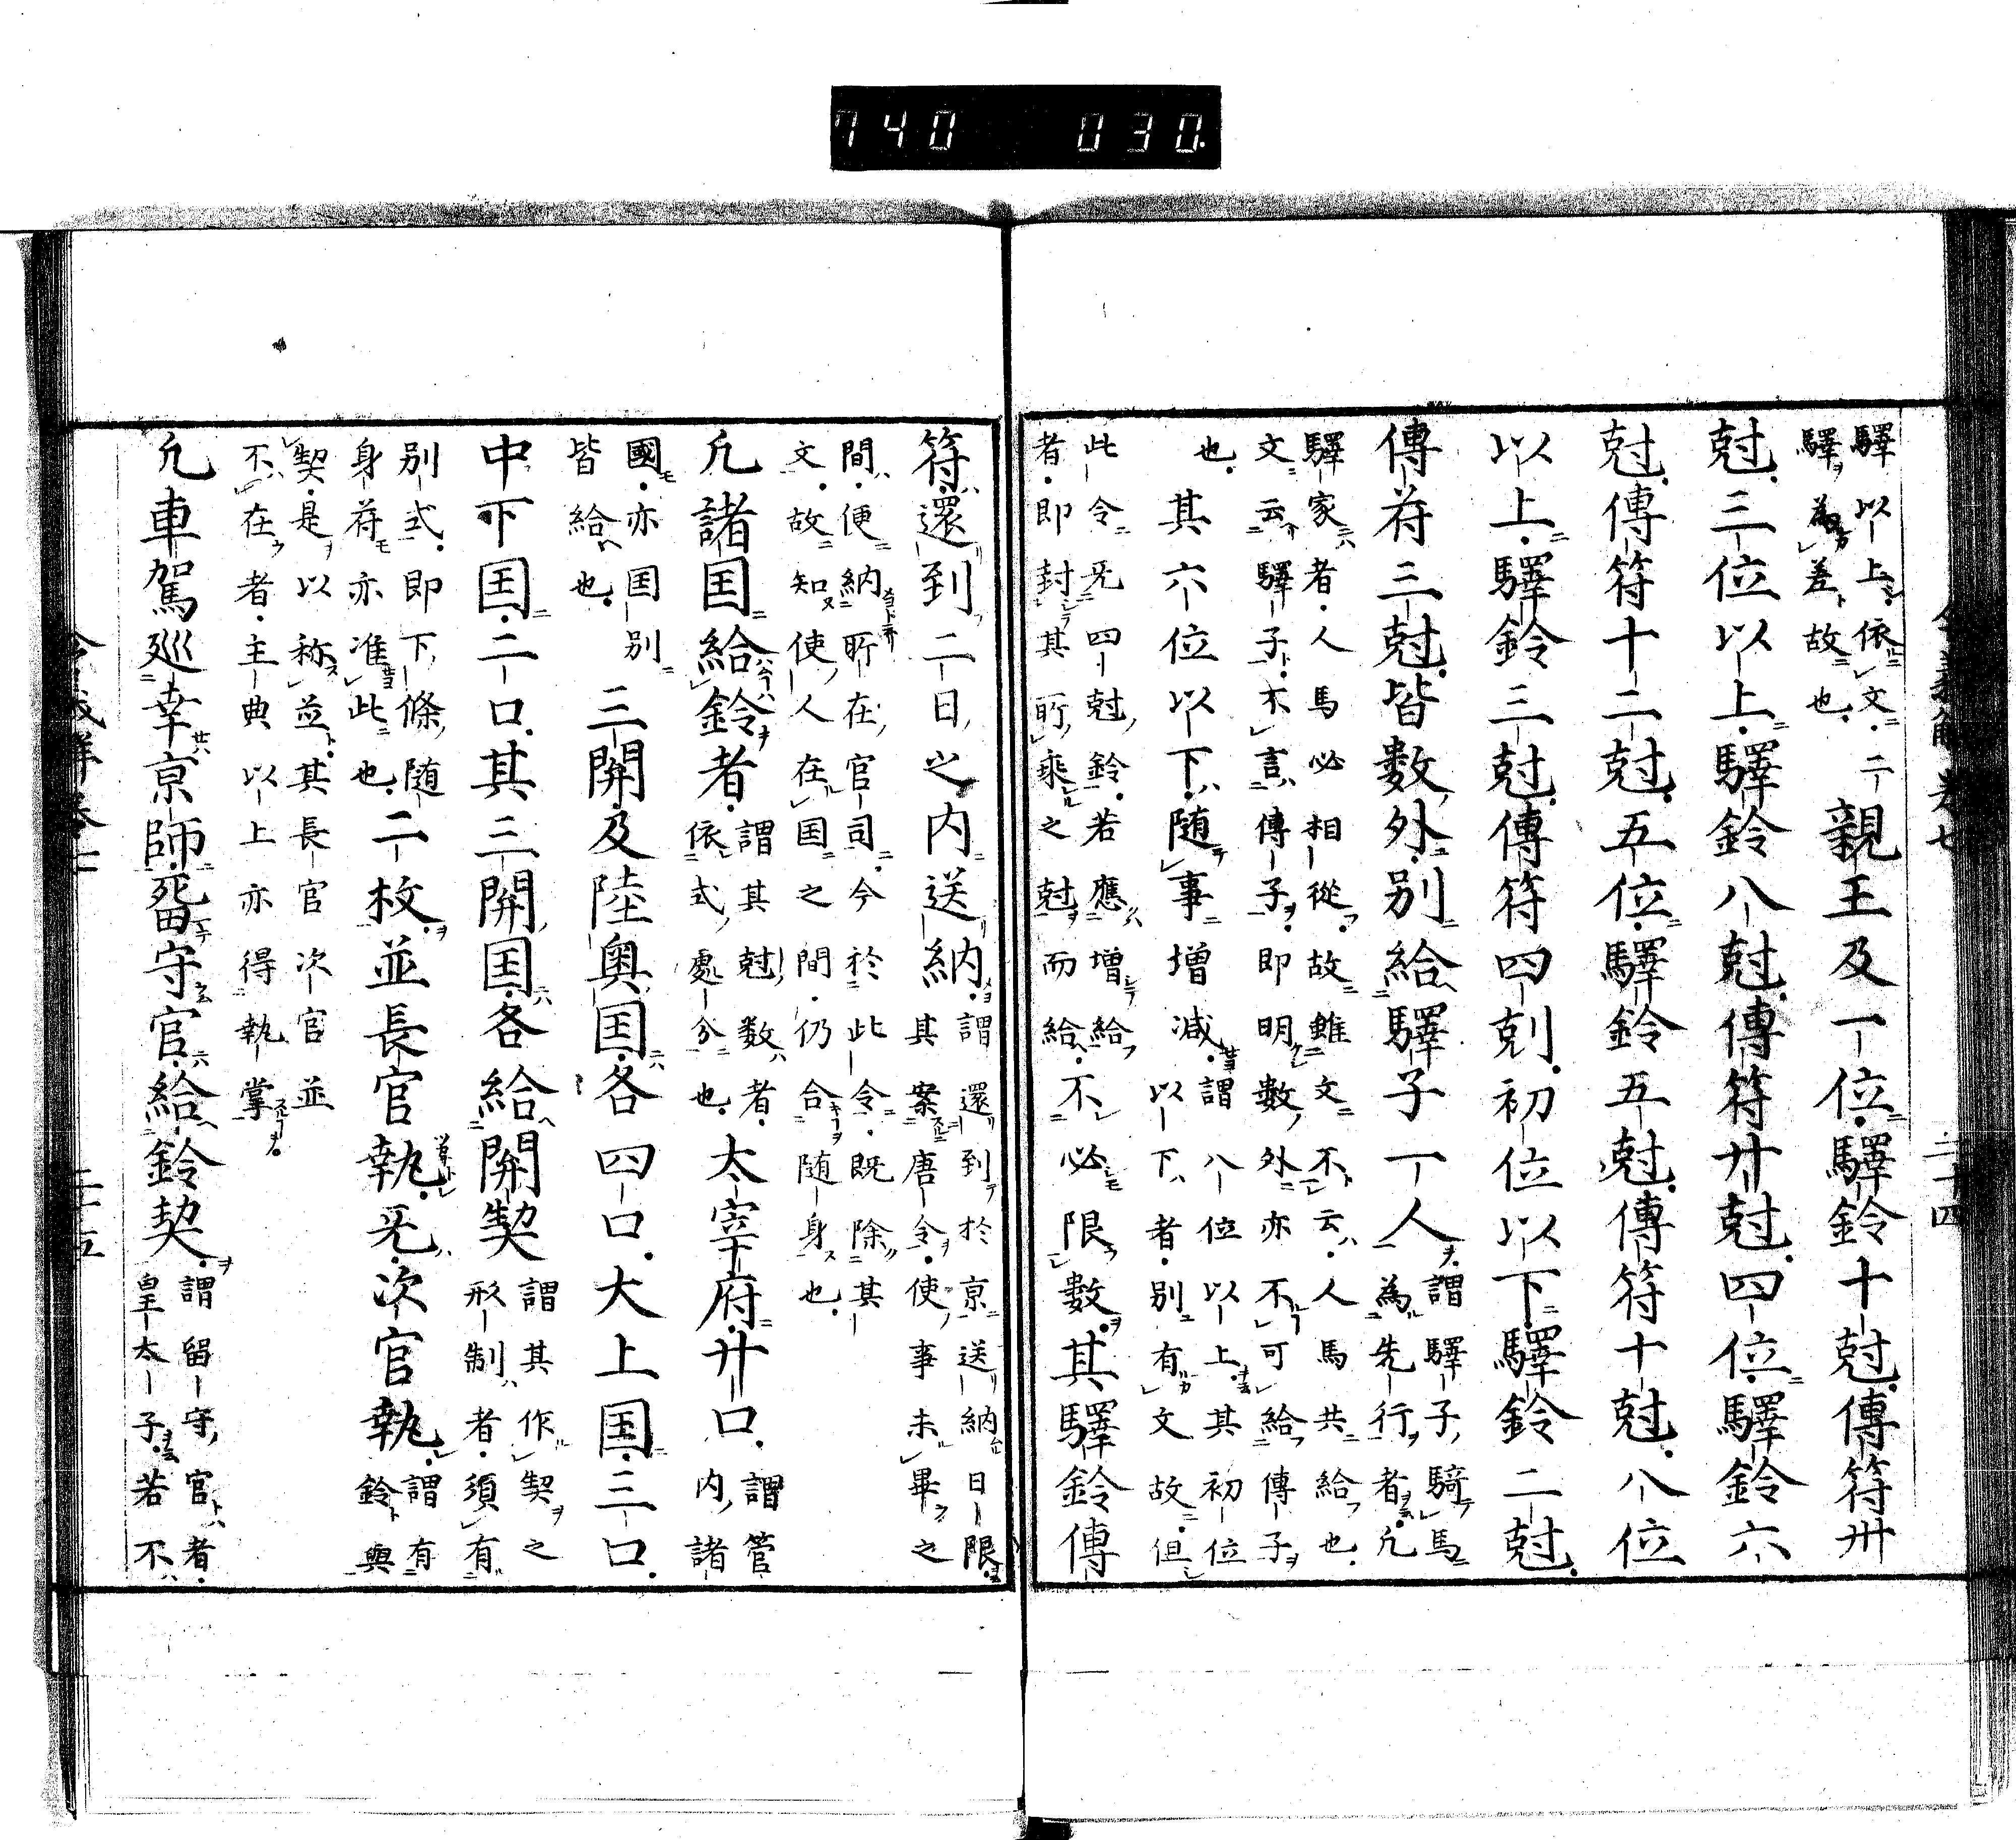 740 030
驛以上依文二
驛為差故也
親王及一位驛鈴十尅傳符卅
尅三位以上驛鈴八尅傳符廾尅四位驛鈴六
尅傳符十二尅五位驛鈴五尅傳符十尅八位
以上驛鈴三尅傳符四剋初位以下驛鈴二尅
傳苻三尅皆數外別給驛子一人
謂驛子騎馬
為先行者凢
驛家者人馬必相從故雖文不云人馬共給也
文云驛子不言傳子即明數外亦不可給傳子
也
其六位以下随事増減
謂八位以上其初位
以下者別有文故但
此令旡四尅鈴若應增給
者即封其所乘之尅而給不必限數
其驛鈴傳
符還到二日之内送納
謂還到於京送納日限
其案唐令使事未畢之
間便納所在官司今於此令既除其
文故知使人在国之間仍合随身也
凢諸国給鈴者
謂其尅数者
依式處分也
太宰府廾口
謂管
内諸
國亦国別
皆給也
三關及陸奥国各四口大上国三口
中下国二口其三關国各給關契
謂其作契之
形制者須有
別式即下條随
身苻亦准此也
二枚並長官執旡次官執
謂有
鈴與
契是以称並其長官次官並
不在者主典以上亦得執掌
凢車駕巡幸京師畱守官給鈴契
謂留守官者
皇太子若不